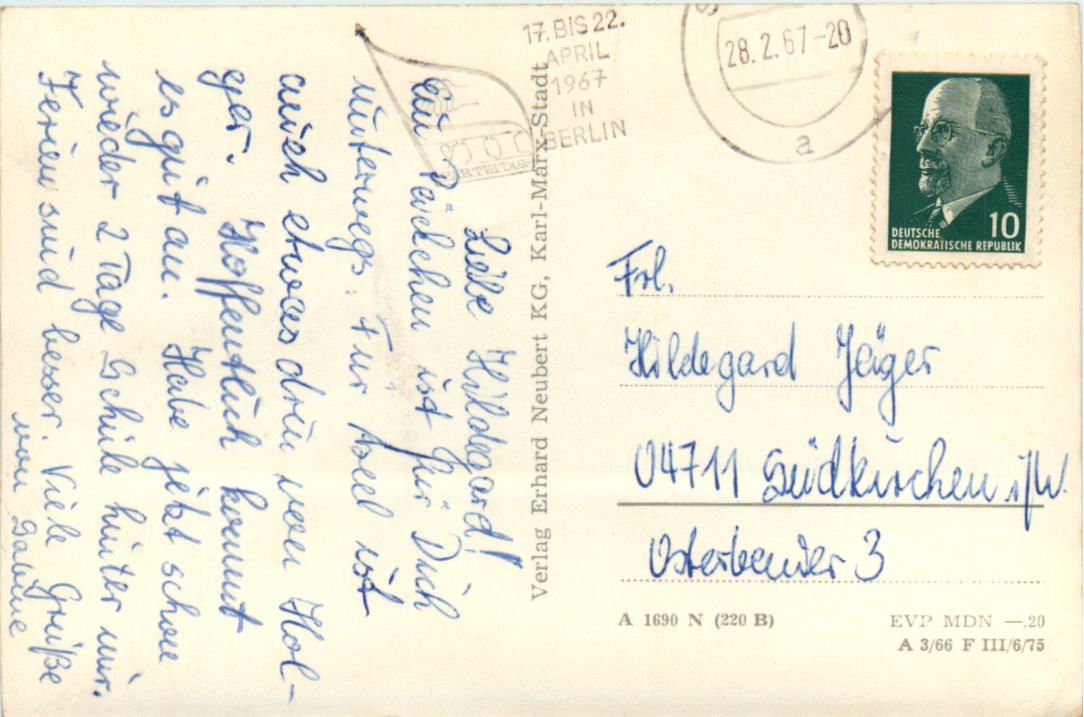 Liebe Hildegard!
Ein Päckchen ist für Dich
unterwegs. Für Axel ist
auch etwas drin von Hol-
ger. Hoffentlich kommt
es gut an. Habe jetzt schon
wieder 2 Tage Schule hinter mir.
Ferien sind besser. Viele Grüße
von Sabine
Verlag Erhard Neubert KG, Karl-Marx-Stadt
17. BIS 22.
APRIL
1967
IN
BERLIN
28.2.67-20
a
10
DEUTSCHE
DEMOKRATISCHE REPUBLIK
Frl.
Hildegard Jäger
04711 Südkirchen i/W.
3
A 1690 N (220 B)
EVP MDN —.20
A 3/66 F III/6/75